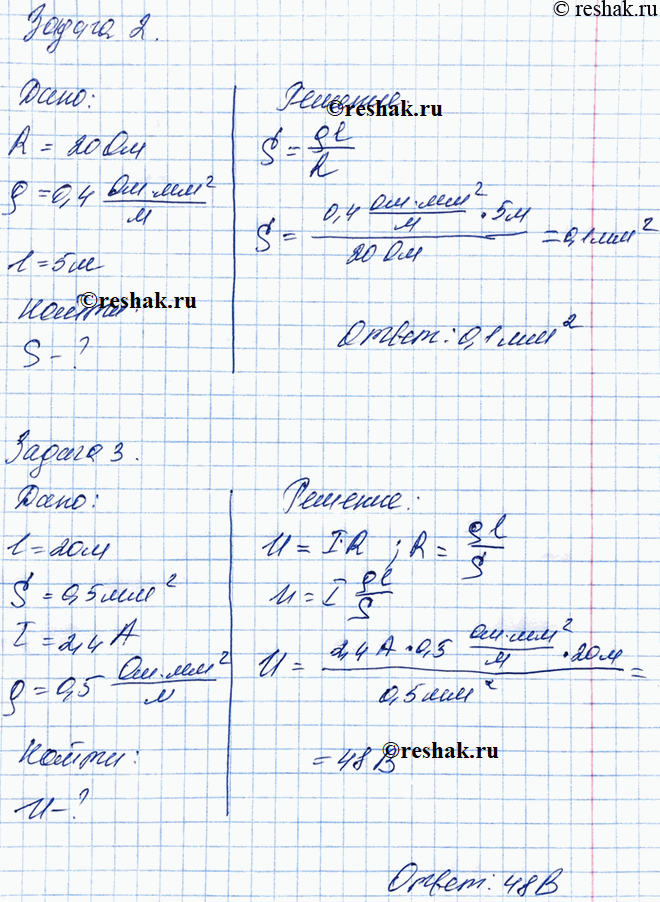 © reshak.ru
Задача 2.
Дано:
R = 20 Ом
ρ = 0,4 Ом·мм²/м
l = 5м
Найти:
S - ?
Решение:
©reshak.ru
S = ρl/R
S = 0,4 Ом·мм²/м · 5м / 20 Ом = 0,1мм²
©reshak.ru
Ответ: 0,1мм²
Задача 3.
Дано:
l = 20м
S = 0,5мм²
I = 2,4 A
ρ = 0,5 Ом·мм²/м
Найти:
U - ?
Решение:
U = I·R ; R = ρl/S
U = I ρl/S
U = 2,4 A · 0,5 Ом·мм²/м · 20м / 0,5мм² =
= 48 В
©reshak.ru
Ответ: 48В